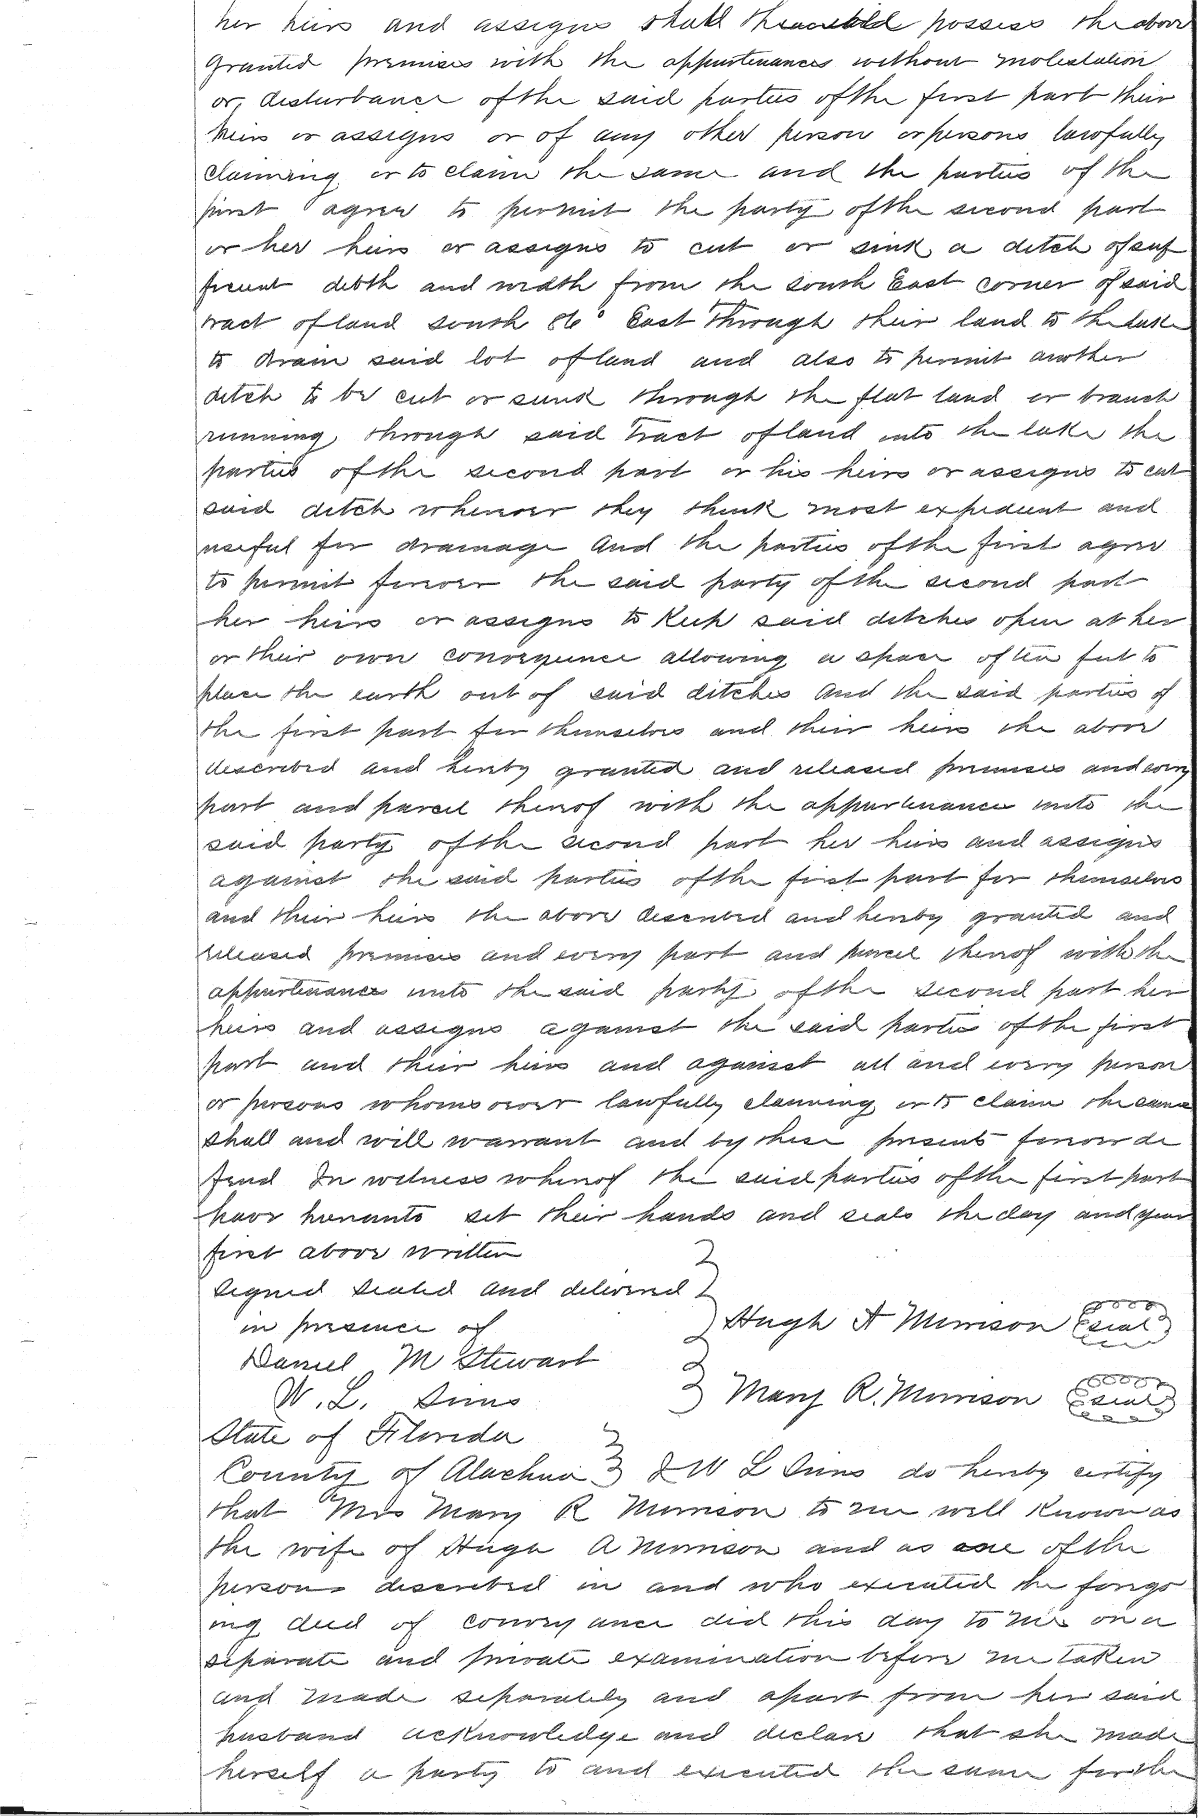 her heirs and assigns shall possess the above
granted premises with the appurtenances without molestation
or, disturbance of the said parties of the first part their
heirs or assigns or of any other person or persons lawfully
claiming or to claim the same and the parties of the
first agree to permit the party of the second part
or her heirs or assigns to cut or sink a ditch of suf
ficient debth and width from the south East corner of said
tract of land south 86° East through their land to the lake
to drain said lot of land and also to permit another
ditch to be cut or sunk through the flat land or branch
running through said Tract of land into the lake the
parties of the second part or his heirs or assigns to cut
said ditch whenever they think most expedient and
useful for drainage And the parties of the first agree
to permit forever the said party of the second part
her heirs or assigns to Keep said ditches open at her
or their own allowing a space of ten feet to
place the earth out of said ditches And the said parties of
the first part for themselves and their heirs the above
described and hereby granted and released premises and every
part and parcel thereof with the appurtenance unto the
said party of the second part her heirs and assigns
against the said parties of the first part for themselves
and their heirs the above described and hereby granted and
released premises and every part and parcel thereof with the
appurtenances unto the said party of the second part her
heirs and assigns against the said parties of the first
part and their heirs and against all and every person
or persons whomsoever lawfully claiming or to claim the same
shall and will warrant and by these presents forever de
fend In witness whereof the said parties of the first part
have hereunto set their hands and seals the day and year
first above written
signed sealed and delivered
in presence of
Hugh A Morrison seal
Daniel M Stewart
Mary R. Morrison seal
W. L. Sims
State of Florida
County of Alachua I W L Sims do hereby certify
that Mrs Mary R Morrison to me well Known as
the wife of Hugh A Morrison and as one of the
persons described in and who executed the forego
ing deed of conveyance did this day to me on a
separate and private examination before me taken
and made separately and apart from her said
husband acknowledge and declare that she made
herself a party to and executed the same for the